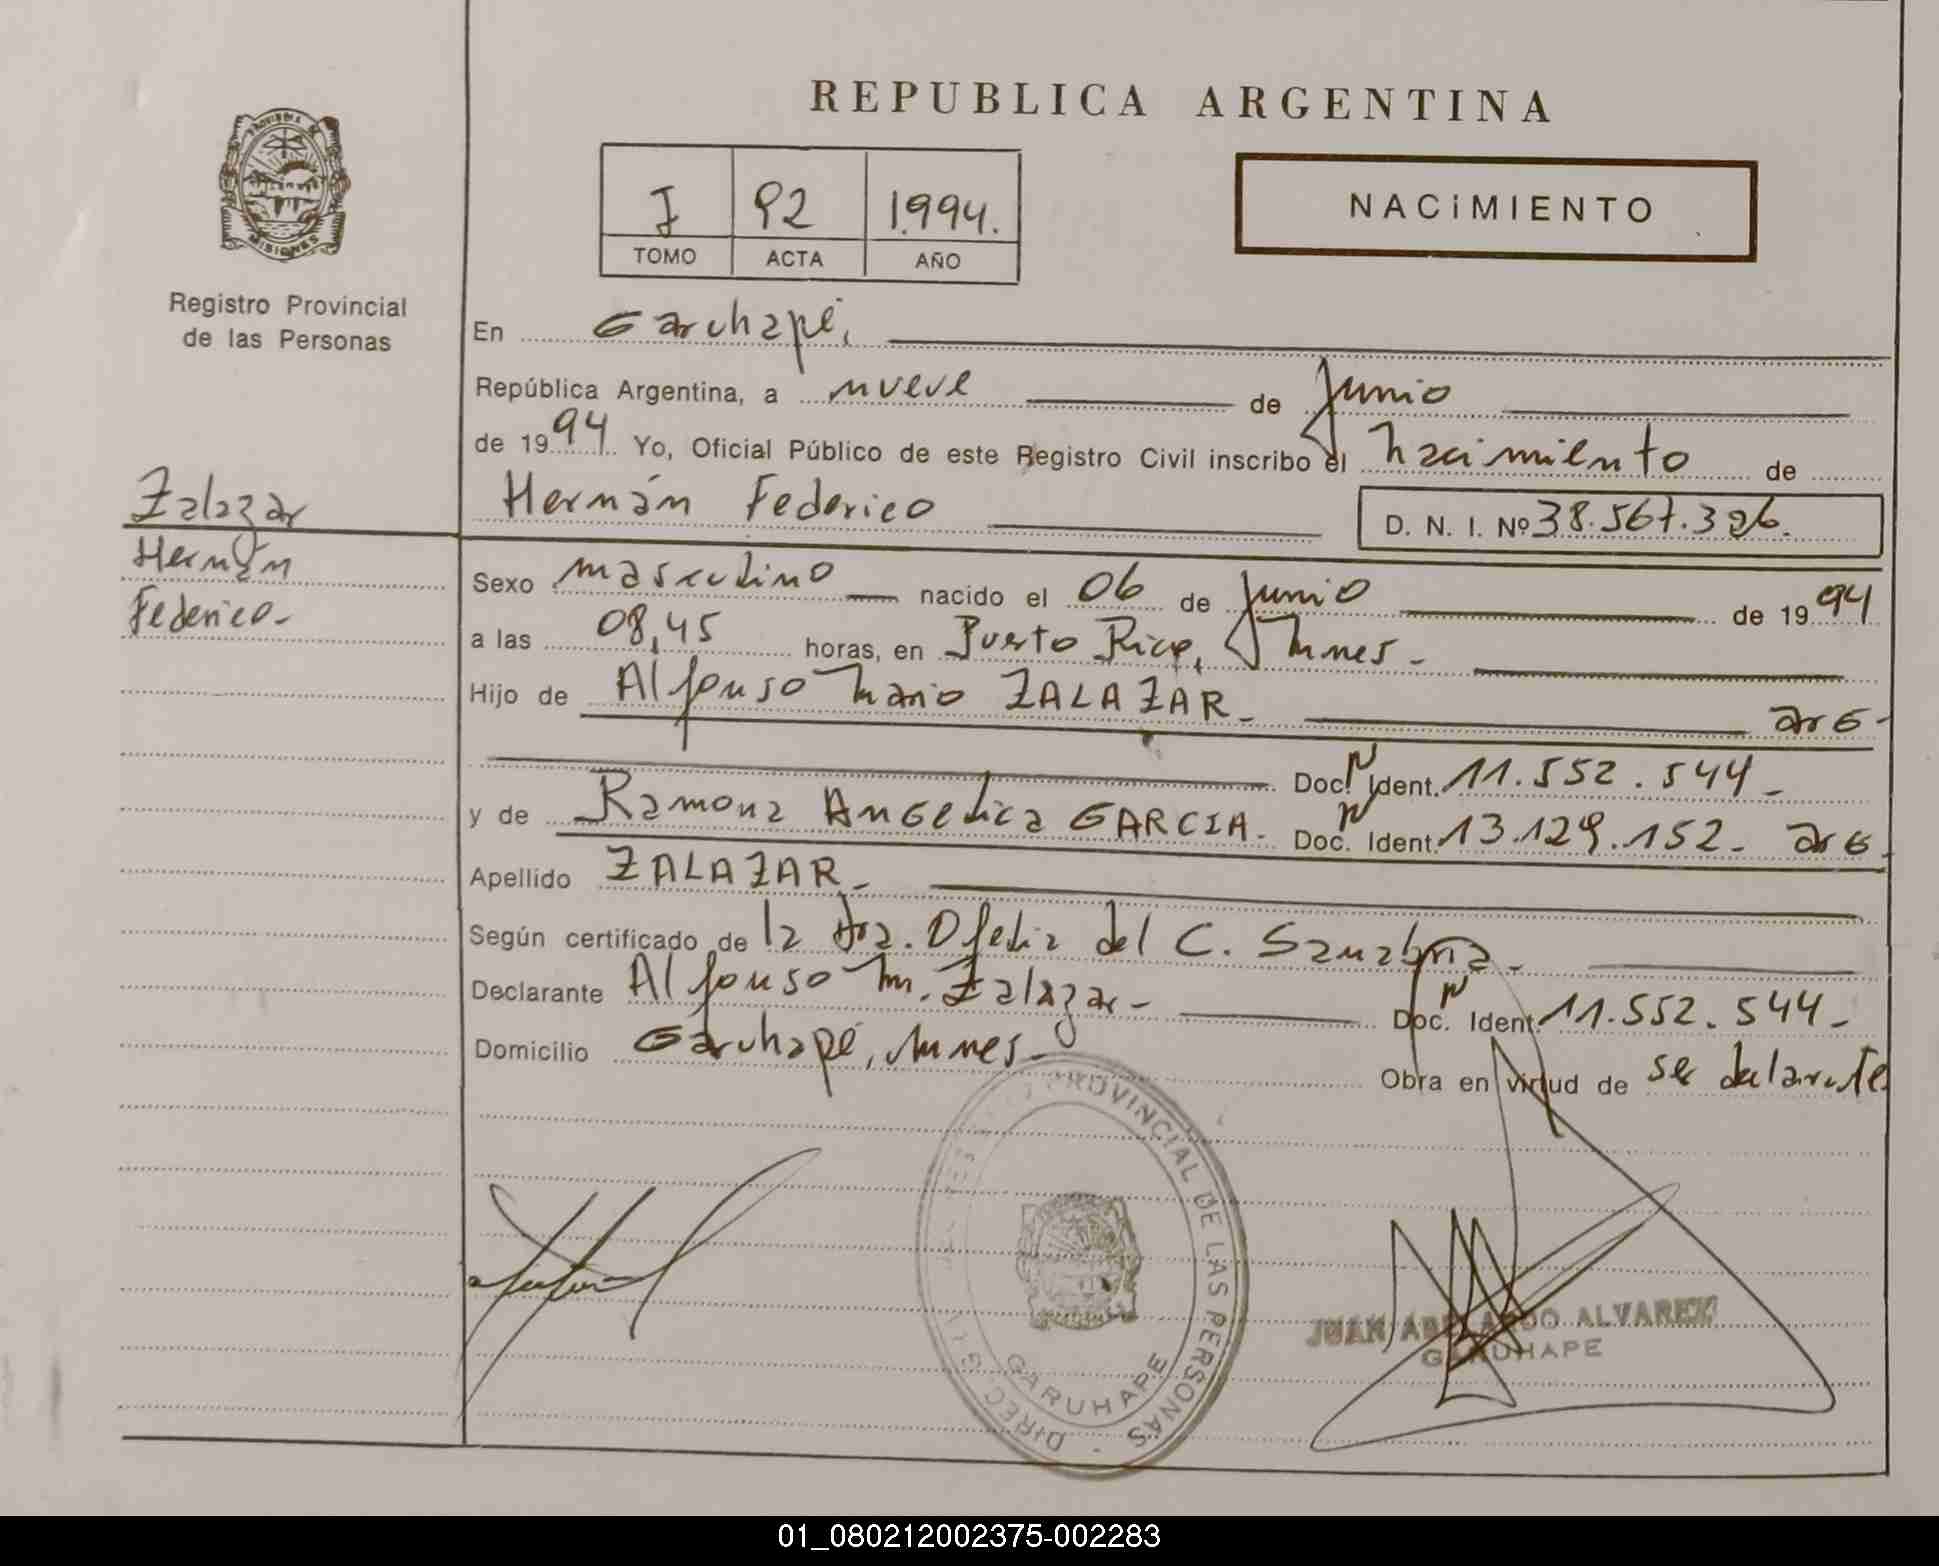 PROVINCIA DE
MISIONES
Registro Provincial
de las Personas
Zalazar
Hernán
Federico-
REPUBLICA ARGENTINA
I 92 1.994.
TOMO ACTA AÑO
NACiMIENTO
En Garuhapé,
República Argentina, a nueve de Junio
de 1994 Yo, Oficial Público de este Registro Civil inscribo el nacimiento de
Hernán Federico D. N. I. Nº 38.567.396.
Sexo masculino nacido el 06 de Junio de 1994
a las 08,45 horas, en Puerto Rico, Mnes-
Hijo de Alfonso Mario ZALAZAR- arG-
Doc. Ident. 11.552.544-
y de Ramona AnGelica GARCIA- Doc. Ident. 13.129.152- arG-
Apellido ZALAZAR-
Según certificado de la dra. Ofelia del C. Sanabria-
Declarante Alfonso M. Zalazar- Doc. Ident. 11.552.544-
Domicilio Garuhapé, Mnes- Obra en virtud de ser declarante
PROVINCIAL DE LAS PERSONAS
GARUHAPE
JUAN ABELARDO ALVAREZ
GARUHAPE
01_080212002375-002283